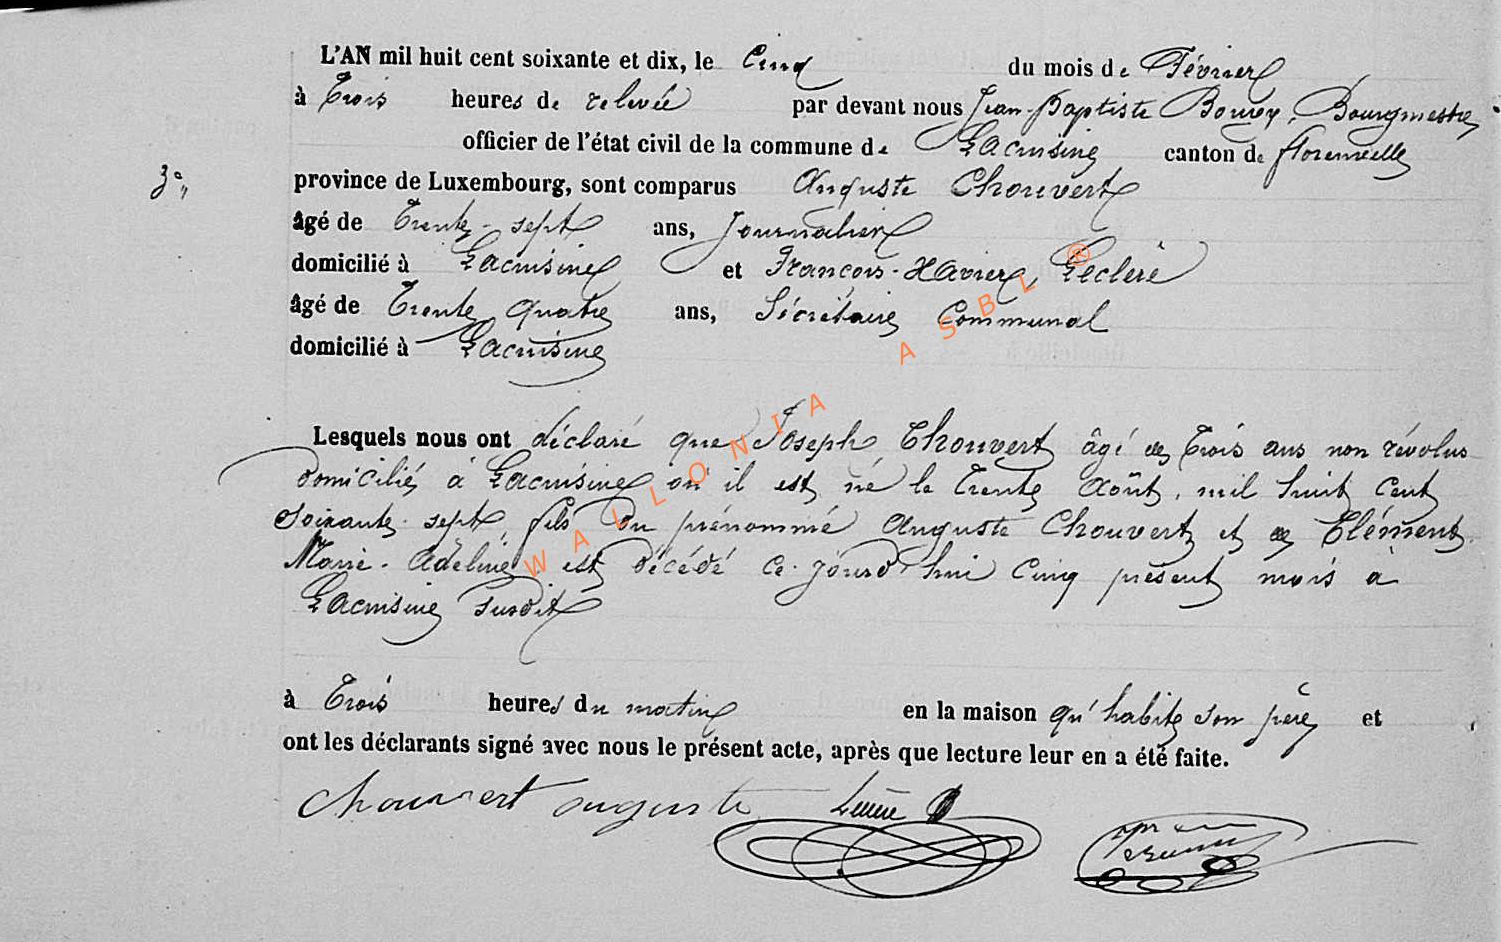 L'AN mil huit cent soixante et dix, le Cinq du mois de Février
à Trois heures de relevée par devant nous Jean-Baptiste Bourgmestre
officier de l'état civil de la commune de Lacuisine canton de florenville
3°,,
province de Luxembourg, sont comparus Auguste Chouvert
âgé de Trente-sept ans, Journalier
domicilié à Lacuisine et François-Xavier Leclère
âgé de Trente quatre ans, Sécrétaire Communal
domicilié à Lacuisine
Lesquels nous ont déclaré que Joseph Chouvert âgé de Trois ans non révolus
domicilié à Lacuisine où il est né le Trente Août, mil huit Cent
Soixante-sept, fils du prénommé Auguste Chouvert et de Clément
Marie-Adeline est décédé ce-jourd'hui cinq présent mois à
Lacuisine susdit
à Trois heures du matin en la maison qu'habite son père et
ont les déclarants signé avec nous le présent acte, après que lecture leur en a été faite.
Chouvert auguste
WALLONIA ASBL ®